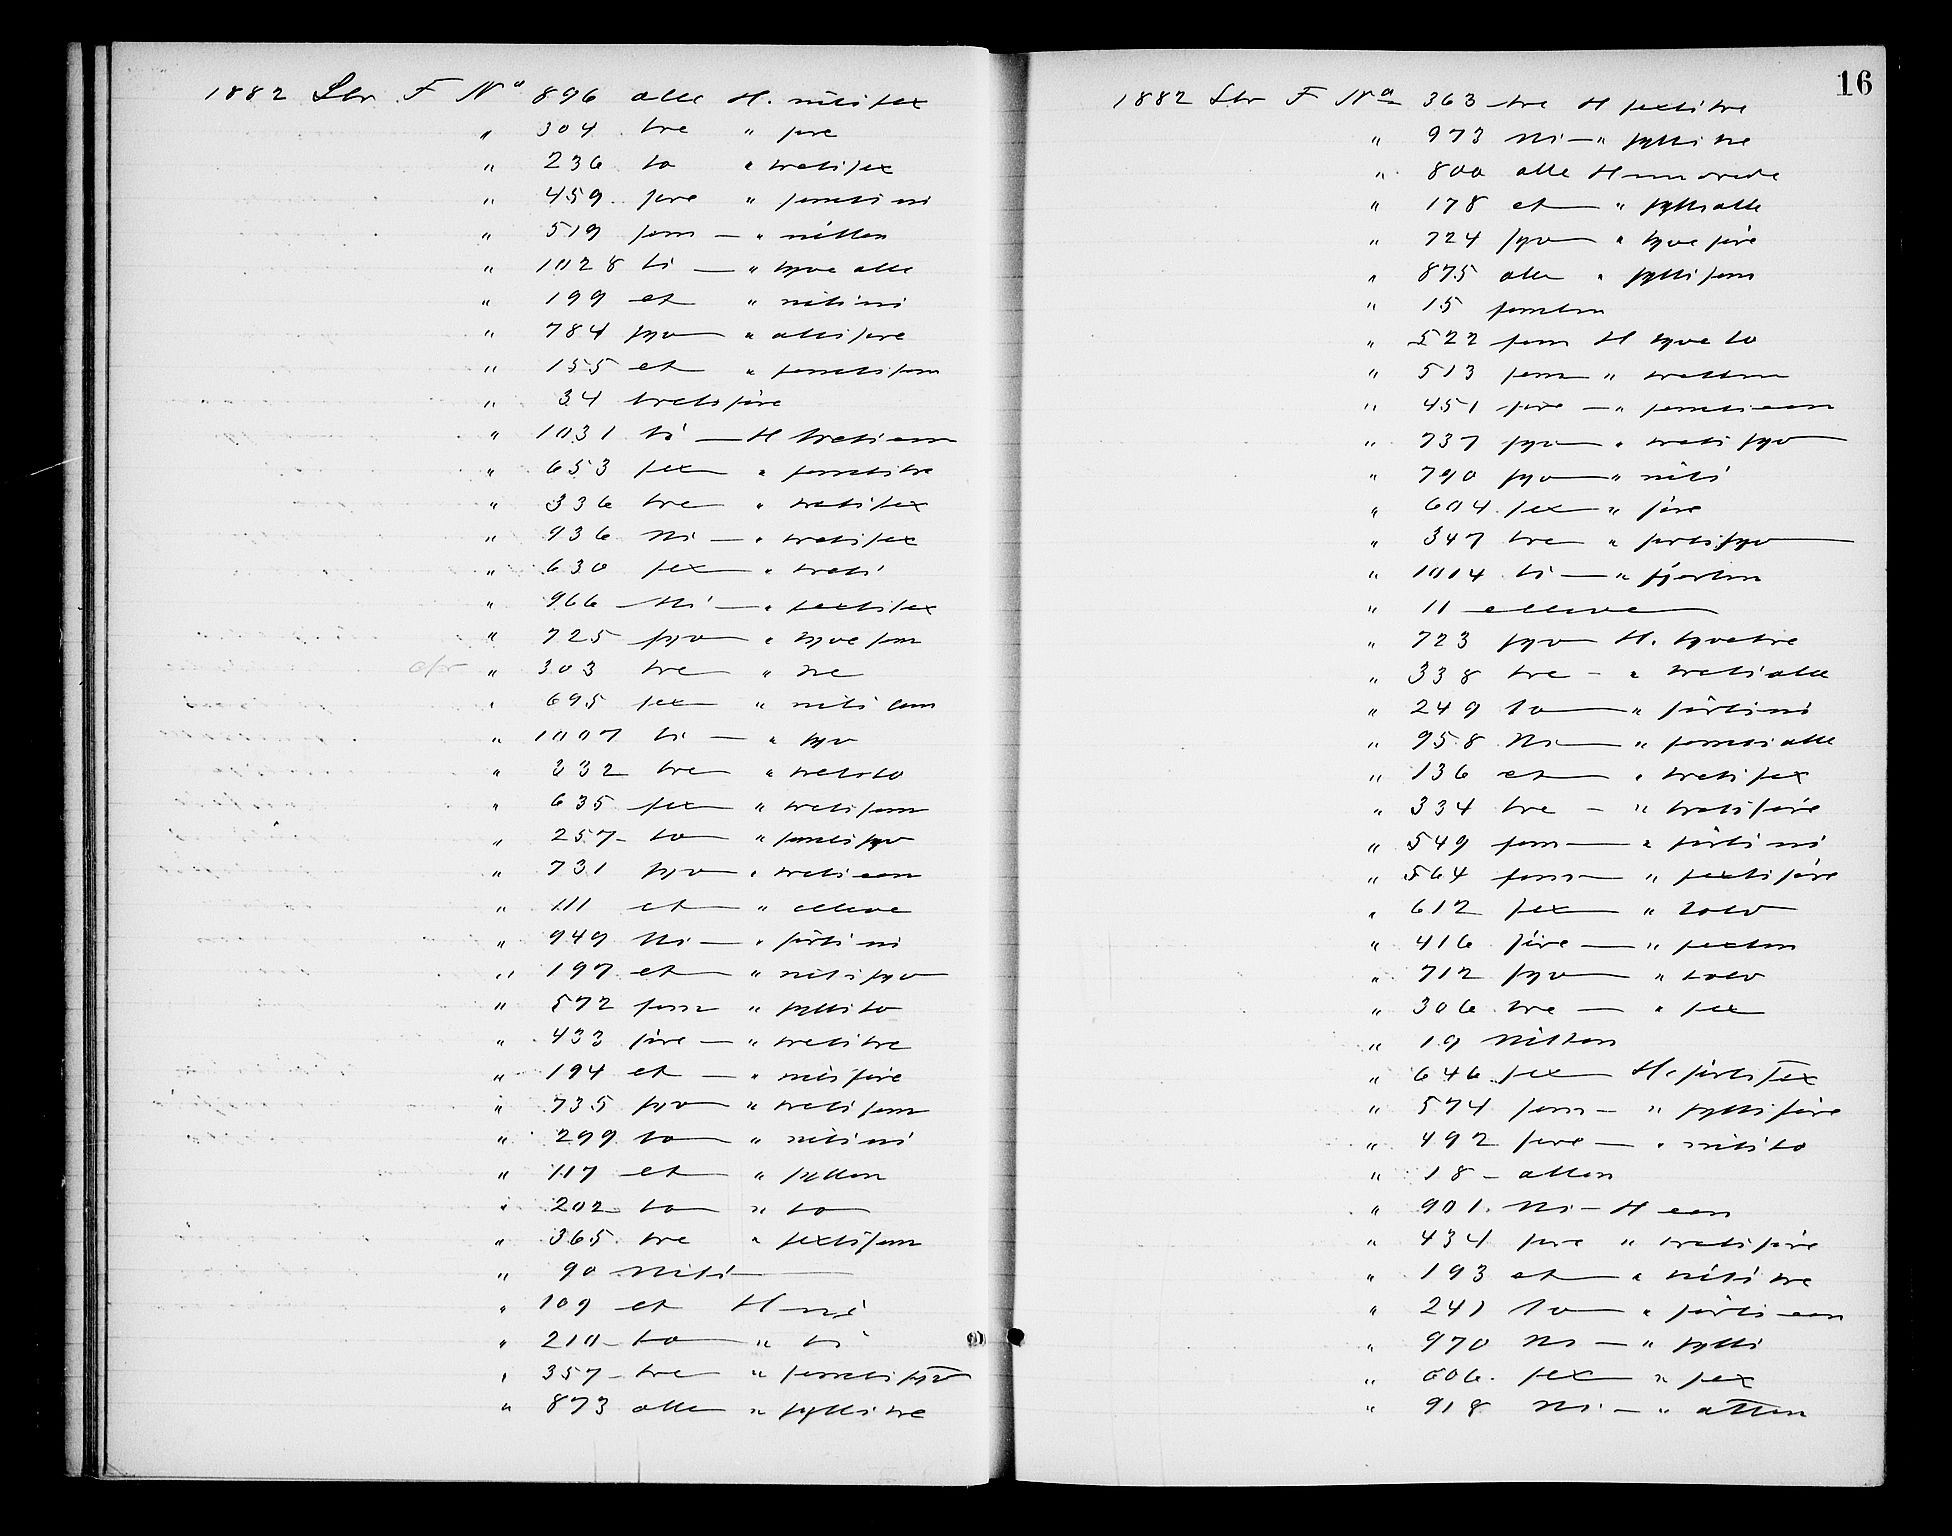 1882 Ltr F No 896 otte H. nitisex
" 304 tre " fire
" 236 to " tretisex
" 459 fire " femti ni
" 519 fem — " nitten
" 1028 ti — " tyve otte
" 199 et " nitini
" 784 syv " ottifire
" 155 et " femtifem
" 34 tretifire
" 1031 ti — H tretieen
" 653 sex " femtitre
" 336 tre " tretisex
" 936 Ni — " tretisex
" 630 sex " treti
" 966 Ni — " sextisex
" 725 syv " tyvefem
" 303 tre " tre
" 695 sex " nitifem
" 1007 ti — " syv
" 332 tre " tretito
" 635 sex " tretifem
" 257 to " femtisyv
" 731 syv " tretieen
" 111 et " elleve
" 949 Ni — " førtini
" 197 et " nitisyv
" 572 fem " syttito
" 433 fire — " tretitre
" 194 et — " nitifire
" 735 syv " tretifem
" 299 to " nitini
" 117 et " sytten
" 202 to " to
" 365 tre " sextifem
" 90 Niti
" 109 et H ni
" 210 to " ti
" 357 tre " femtisyv
" 873 otte " syttitre
16
1882 Ltr F No 363 tre H sextitre
" 973 Ni — " syttitre
" 800 otte Hundrede
" 178 et " syttiotte
" 724 syv " tyvefire
" 875 otte " syttifem
" 15 femten
" 522 fem H tyveto
" 513 fem " tretten
" 451 fire — " femtieen
" 737 syv " tretisyv
" 790 syv " niti
" 604 sex " fire
" 347 tre " førtisyv
" 1014 ti — " fjorten
" 11 elleve
" 723 syv H. tyvetre
" 338 tre — " tretiotte
" 249 To " førtini
" 958 Ni — " femtiotte
" 136 et " tretisex
" 334 tre — " tretifire
" 549 fem — " førtini
" 564 fem — " sextifire
" 612 sex " tolv
" 416 fire — " sexten
" 712 syv " tolv
" 306 tre — " sex
" 19 Nitten
" 646 sex H. førtisex
" 574 fem — " syttifire
" 492 fire — " nitito
" 18 — atten
" 901 Ni — H een
" 434 fire " tretifire
" 193 et " nititre
" 241 To " førtieen
" 970 Ni — " sytti
" 606 sex " sex
" 918 Ni — " atten